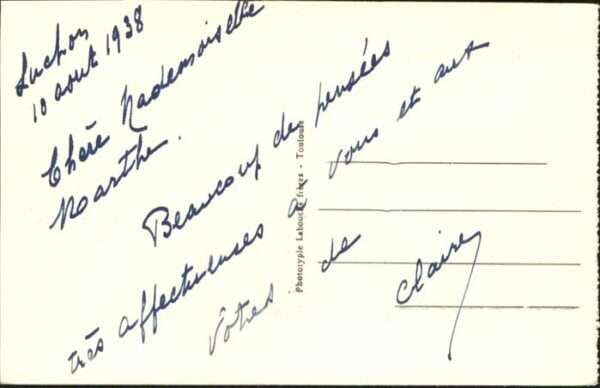 Luchon
10 août 1938
Chère Mademoiselle
Marthe.
Beaucoup de pensées
très affectueuses à vous et aux
vôtres. de Claire
Phototypie Labouche frères - Toulouse